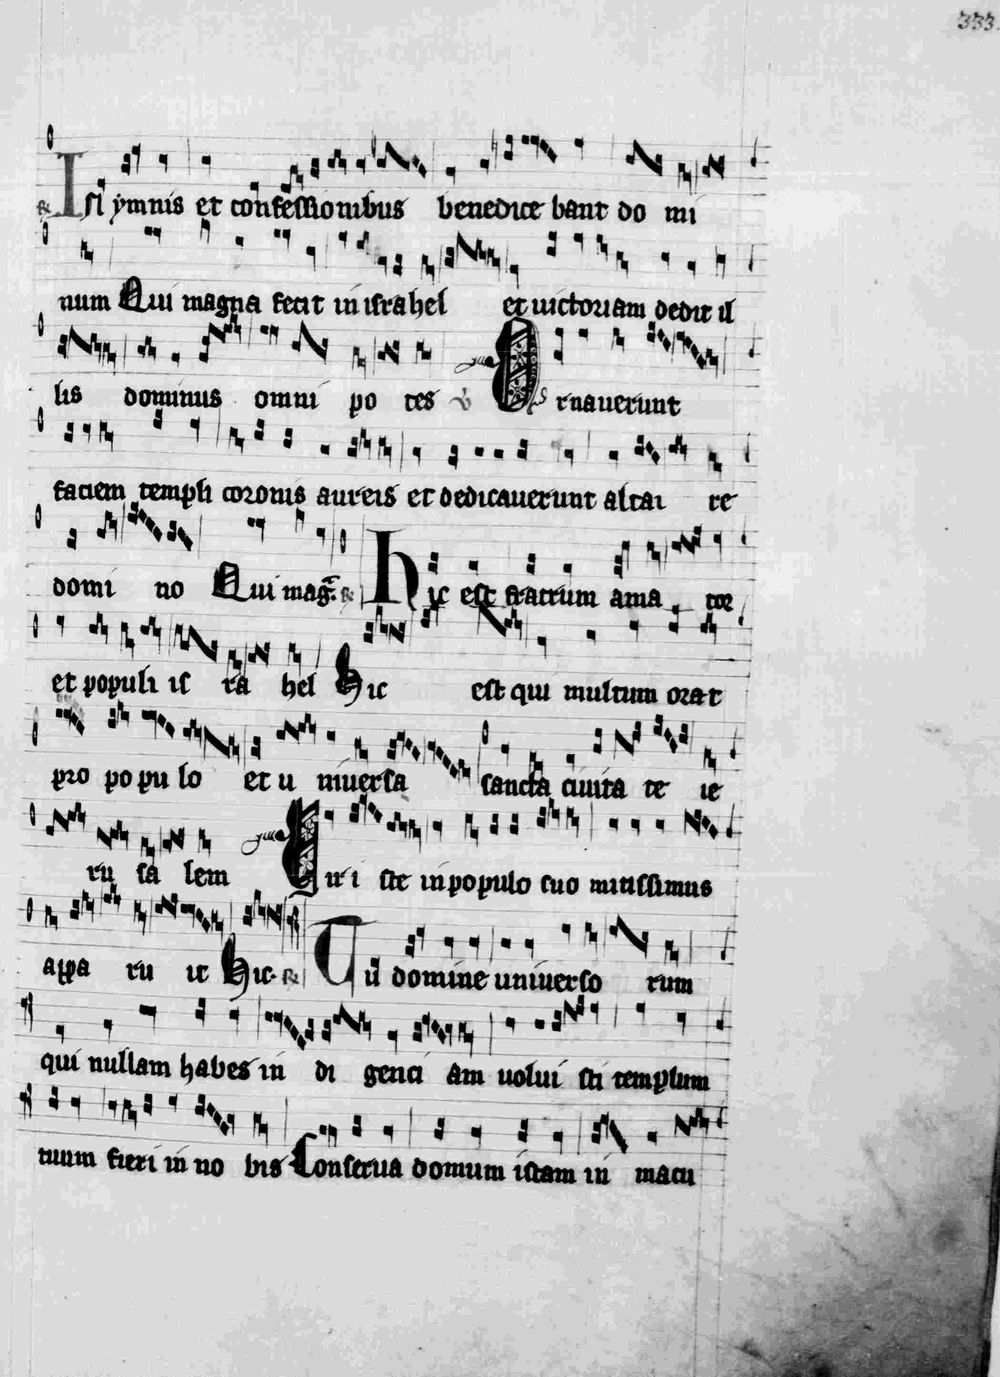 333.
℟ In ymnis et confessionibus benedice bant do mi
num Qui magna fecit in israhel et uictoriam dedit il
lis dominus omni po tes V Ornauerunt
faciem templi coronis aureis et dedicauerunt altai re
domi no Qui mag. ℟ hic est fratrum ama tor
et populi is ra hel Hic est qui multum orat
pro po pu lo et u niuersa sancta ciuita te ie
ru sa lem Uir iste in populo suo mitissimus
appa ru it Hic. ℟ Tu domine uniuerso rum
qui nullam habes in di genci am uolui sti templum
tuum fieri in no bis Conserua domum istam in macu